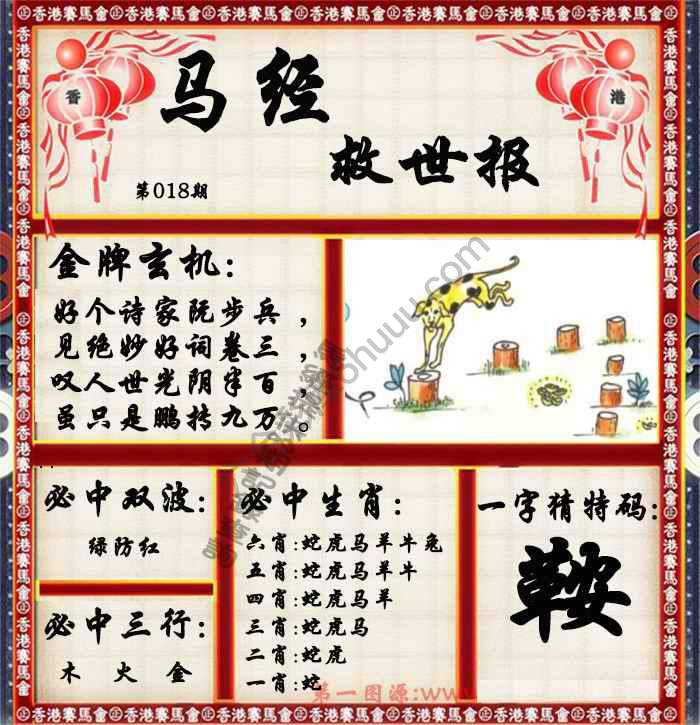 香港賽馬會
香
港
马经
救世报
第018期
金牌玄机:
好个诗家阮步兵，
见绝妙好词卷三，
叹人世光阴半百，
虽只是鹏抟九万。
必中双波:
绿防红
必中三行:
木 火 金
必中生肖:
六肖:蛇虎马羊牛兔
五肖:蛇虎马羊牛
四肖:蛇虎马羊
三肖:蛇虎马
二肖:蛇虎
一肖:蛇
一字猜特码:
鞍
第一图源:www